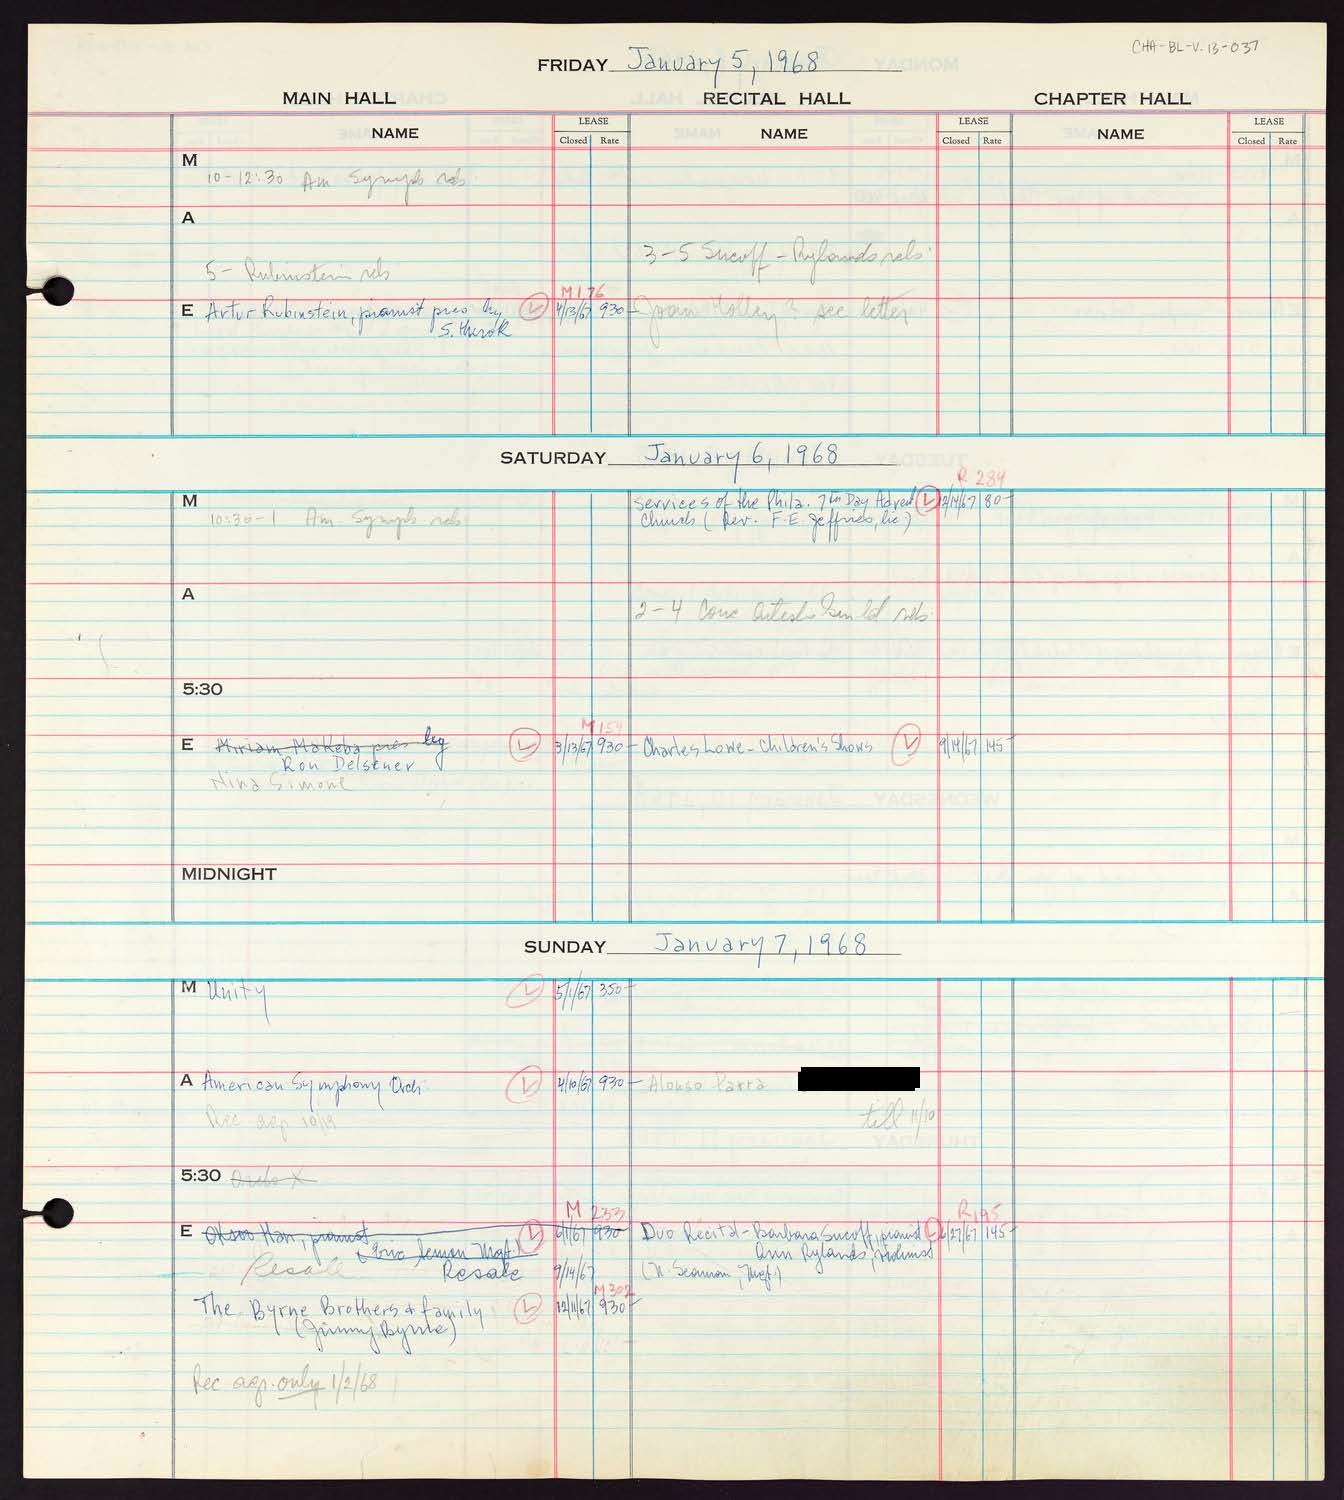 CHA-BL-V.13-037
FRIDAY January 5, 1968
MAIN HALL RECITAL HALL CHAPTER HALL
NAME LEASE NAME LEASE NAME LEASE
Closed Rate Closed Rate Closed Rate
M
10-12:30 Am Symph reh
A
3-5 Sucoff-Rylands reh
5- Rubinstein reh
M176
E Artur Rubinstein, pianist pres by L 4/13/67 930- Joan see letter
S. Hurok
SATURDAY January 6, 1968
R 284
M services of the Phila. 7th Day Advent L 12/14/67 80-
10:30-1 Am Symph reh Church (Rev. F.E. Jeffries, lic)
A
2-4 Conc Artists Guild reh
5:30
M159
E Miriam Makeba pres by L 3/13/67 930- Charles Lowe-Children's Shows L 9/14/67 145-
Ron Delsener
Nina Simone
MIDNIGHT
SUNDAY January 7, 1968
M Unity L 5/1/67 350-
A American Symphony Orch. L 4/10/67 930- Alonso Parra
Rec agp 10/19 till 11/10
5:30
M 233 R195
E Okson Han, pianist L 6/1/67 930 Duo Recital-Barbara Sucoff, pianist L 6/27/67 145-
(Eric Semon Mgt.) Ann Rylands, violinist
Resale Resale 9/14/67 (N. Seaman, Mgt)
M302
The Byrne Brothers & family L 12/11/67 930-
(Jimmy Byrne)
Rec agp. only 1/2/68